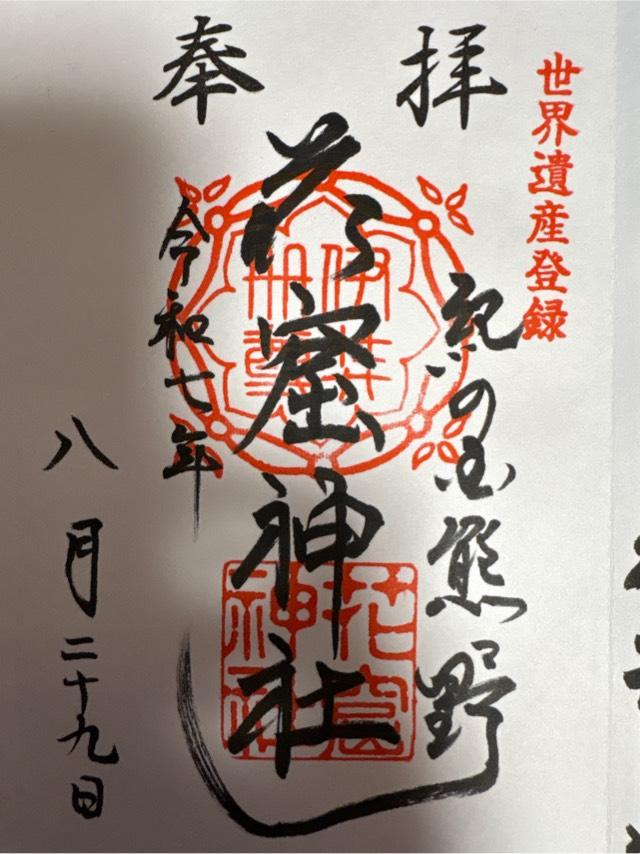 世界遺産登録
奉拝
紀の国熊野
花窟神社
令和七年
八月二十九日
花窟神社